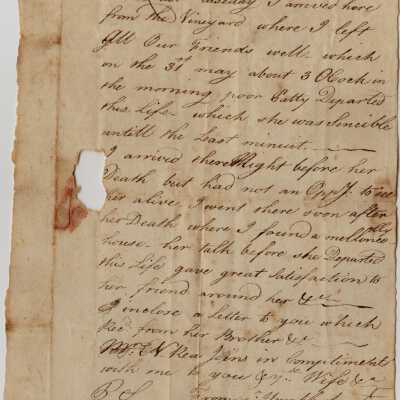 last Tuesday I arrived here
from the Vineyard where I left
All Our Friends well - which
on the 31st may about 3 OCock in
the morning poor Patty Departed
this Life - which she was Sencible
untill the Last minuit. —
I arrived there Night before her
Death but had not an Oppy. to see
her alive I went there soon after
her Death where I found a mellonco
lly
house - her talk before she Departed
this Life gave great Satisfaction to
her friend around her &c —
I inclose a Letter to you which
Recd. from her Brother &c
Mr. Joins in Compliments
with me to you & yr. Wife &c
P.S. From